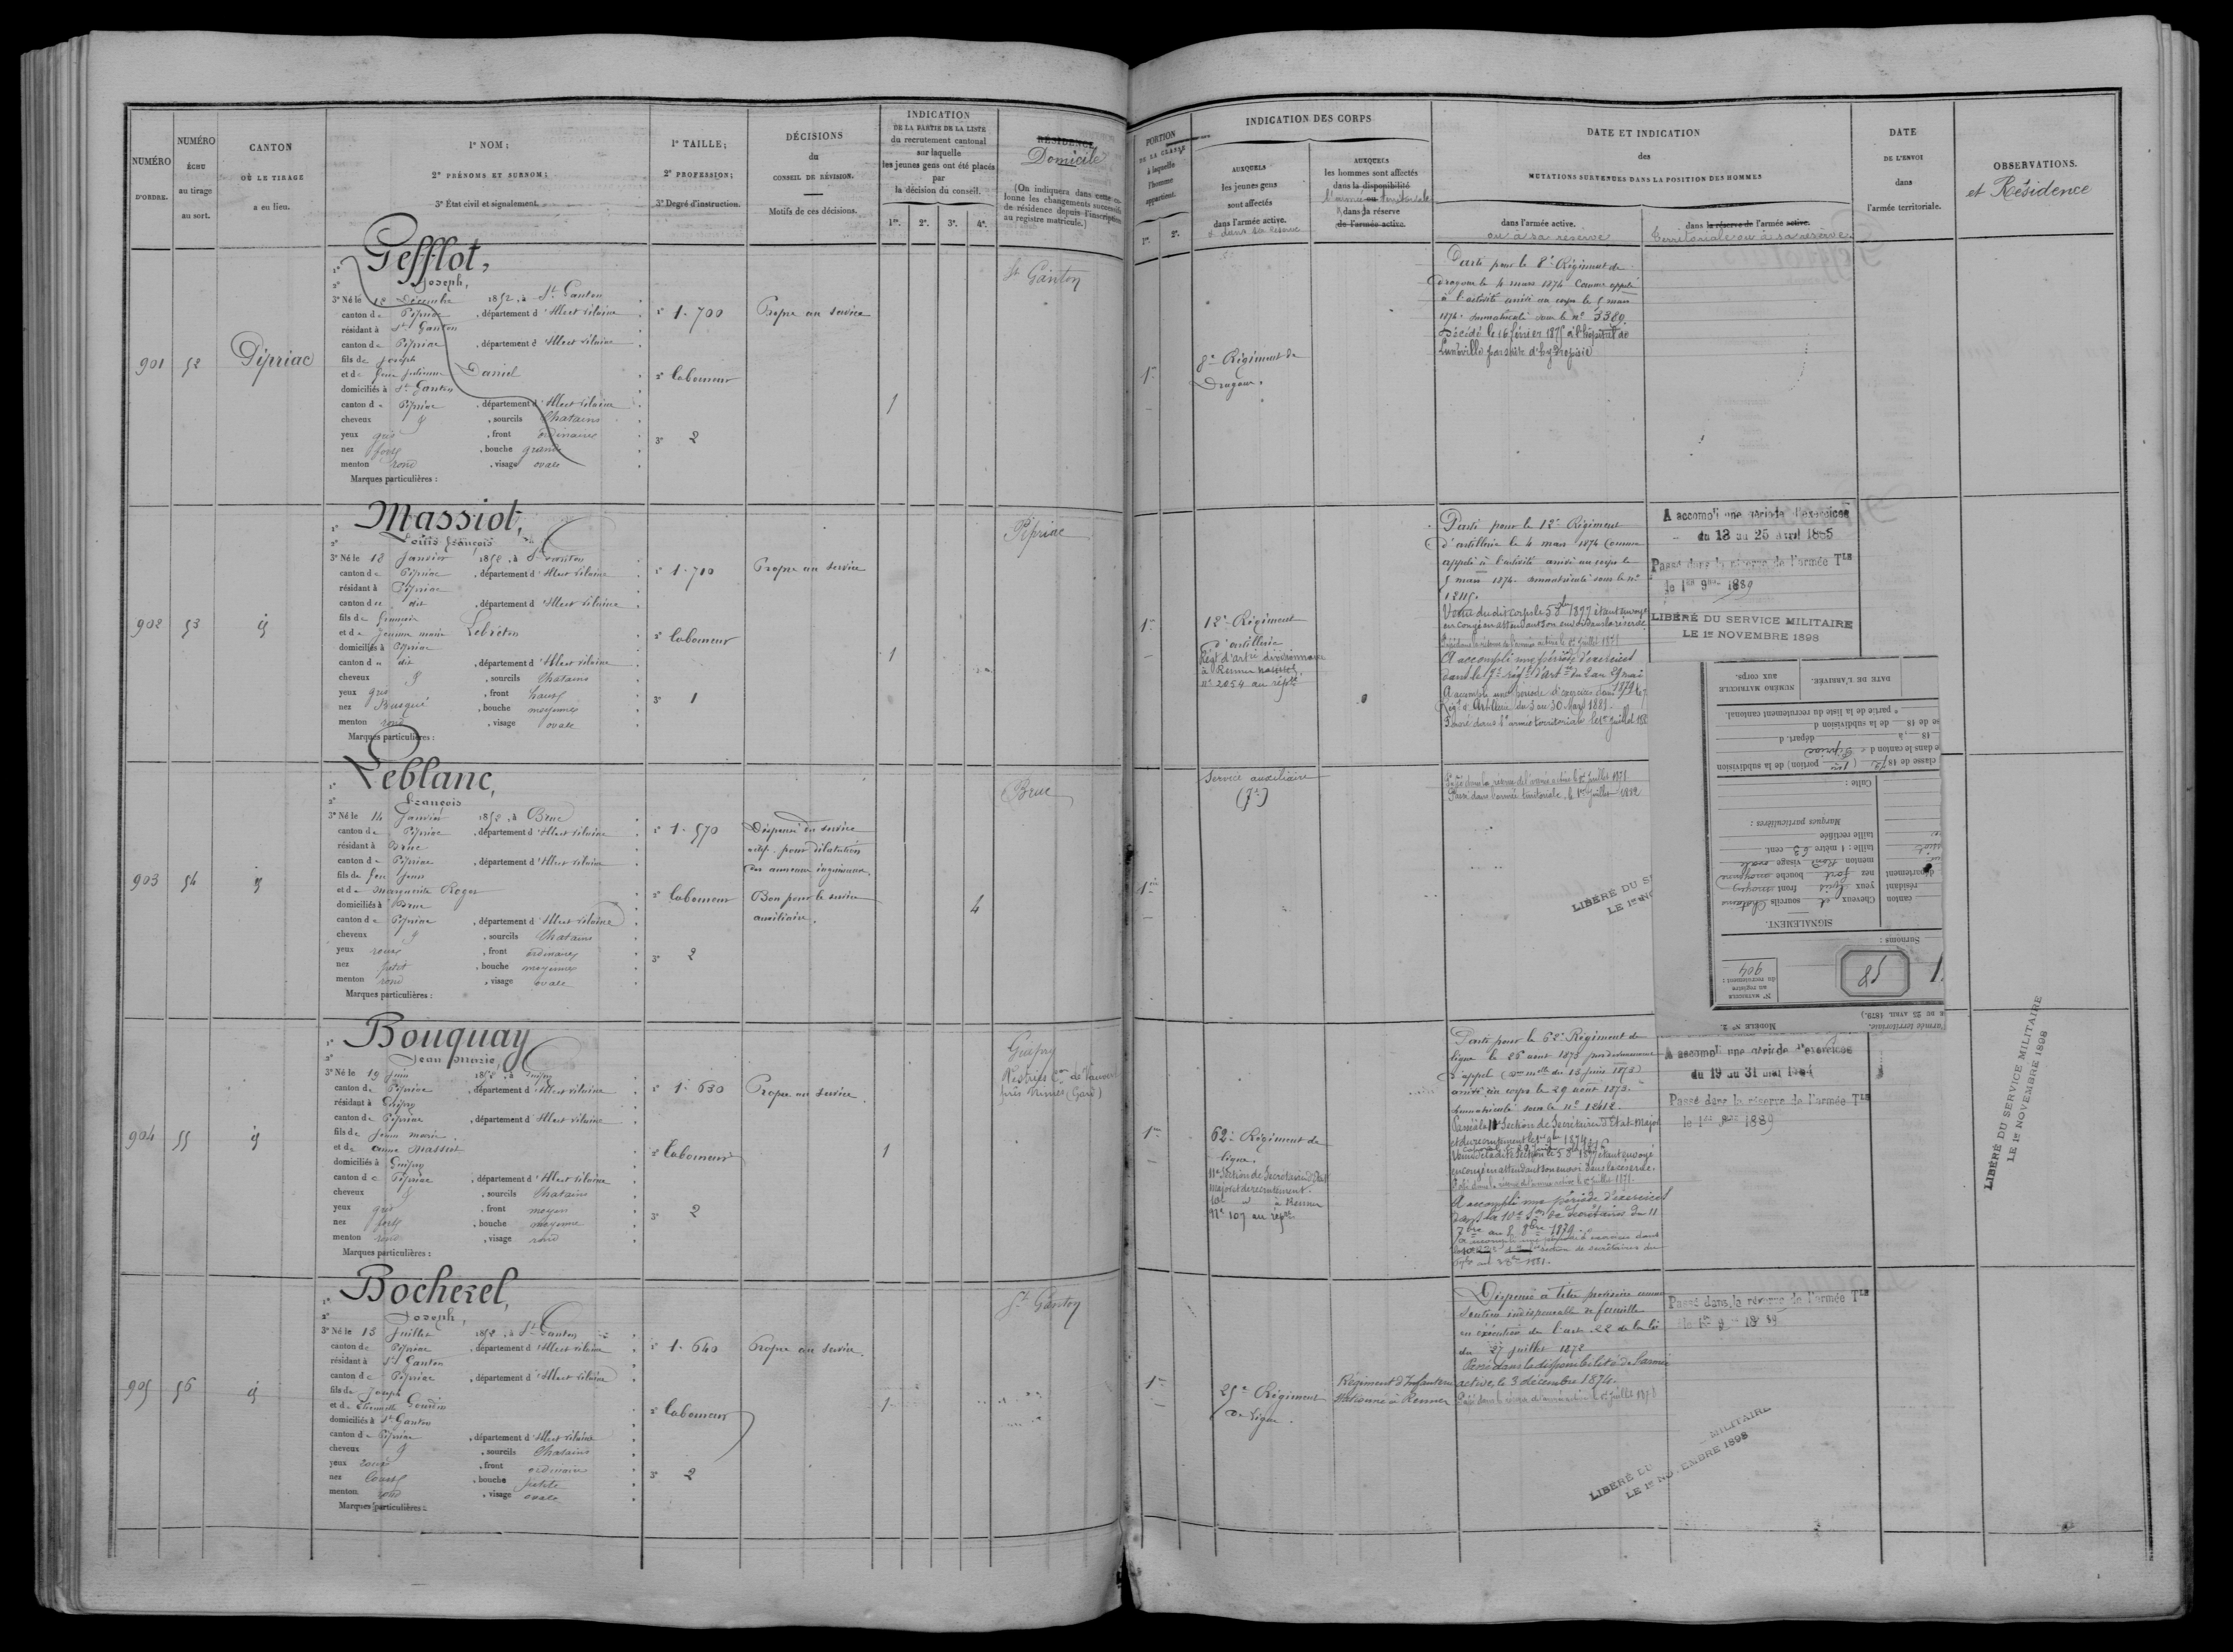 NUMÉRO
D'ORDRE.
NUMÉRO
ÉCHU
au tirage
au sort.
CANTON
OÙ LE TIRAGE
a eu lieu.
1º NOM;
2º PRÉNOMS ET SURNOM;
3º État civil et signalement.
1º TAILLE;
2º PROFESSION;
3º Degré d'instruction.
DÉCISIONS
du
CONSEIL DE RÉVISION.
Motifs de ces décisions.
INDICATION
DE LA PARTIE DE LA LISTE
du recrutement cantonal
sur laquelle
les jeunes gens ont été placés
par
la décision du conseil.
1re. 2e. 3e. 4e.
RÉSIDENCE
Domicile
(On indiquera dans cette co-
lonne les changements successifs
de résidence depuis l'inscription
au registre matricule.)
901
52
Pipriac
1º Gefflot,
2º Joseph,
3º Né le 12 Décembre 1852, à St Ganton
canton de Pipriac, département d'Ille et Vilaine
résidant à St Ganton
canton de Pipriac, département d'Ille et Vilaine
fils de Joseph
et de Daniel
domiciliés à St Ganton
canton de Pipriac, département d'Ille et Vilaine
cheveux &, sourcils Chatains
yeux gris, front ordinaire
nez fort, bouche grande
menton rond, visage ovale
Marques particulières :
1º 1.700
2º Laboureur
3º 2
Propre au service
1
St Ganton
902
53
id
1º Massiot,
2º Louis François
3º Né le 12 Janvier 1852, à St Ganton
canton de Pipriac, département d'Ille et Vilaine
résidant à Pipriac
canton de dit, département d'Ille et Vilaine
fils de François
et de Jeanne Marie Lebreton
domiciliés à Pipriac
canton de dit, département d'Ille et Vilaine
cheveux &, sourcils Chatains
yeux gris, front haut
nez Busqué, bouche moyenne
menton rond, visage ovale
Marques particulières :
1º 1.710
2º Laboureur
3º 1
Propre au service
1
Pipriac
903
54
id
1º Leblanc,
2º François
3º Né le 14 Janvier 1852, à Bruc
canton de Pipriac, département d'Ille et Vilaine
résidant à Bruc
canton de Pipriac, département d'Ille et Vilaine
fils de feu Jean
et de Marguerite Roger
domiciliés à Bruc
canton de Pipriac, département d'Ille et Vilaine
cheveux &, sourcils Chatains
yeux roux, front ordinaire
nez petit, bouche moyenne
menton rond, visage ovale
Marques particulières :
1º 1.570
2º Laboureur
3º 2
Dispensé du service
actif pour dilatation
des anneaux inguinaux.
Bon pour le service
auxiliaire.
4
Bruc
904
55
id
1º Bouquay
2º Jean Marie,
3º Né le 19 Juin 1852, à Guipry
canton de Pipriac, département d'Ille et Vilaine
résidant à Guipry
canton de Pipriac, département d'Ille et Vilaine
fils de Jean Marie
et de Anne Massiot
domiciliés à Guipry
canton de Pipriac, département d'Ille et Vilaine
cheveux &, sourcils Chatains
yeux gris, front moyen
nez fort, bouche moyenne
menton rond, visage rond
Marques particulières :
1º 1.630
2º Laboureur
3º 2
Propre au service.
1
Guipry
près Nimes (Gard)
905
56
id
1º Bocherel,
2º Joseph,
3º Né le 13 Juillet 1852, à St Ganton
canton de Pipriac, département d'Ille et Vilaine
résidant à St Ganton
canton de Pipriac, département d'Ille et Vilaine
fils de Joseph
et de Gourdin
domiciliés à St Ganton
canton de Pipriac, département d'Ille et Vilaine
cheveux &, sourcils Chatains
yeux roux, front ordinaire
nez Court, bouche petite
menton rond, visage ovale
Marques particulières :
1º 1.640
2º Laboureur
3º 2
Propre au service.
1
St Ganton
PORTION
DE LA CLASSE
à laquelle
l'homme
appartient.
1re. 2e.
INDICATION DES CORPS
AUXQUELS
les jeunes gens
sont affectés
dans l'armée active.
& dans sa réserve
AUXQUELS
les hommes sont affectés
dans la disponibilité
l'armée territoriale
ou
dans la réserve
de l'armée active.
DATE ET INDICATION
des
MUTATIONS SURVENUES DANS LA POSITION DES HOMMES
dans l'armée active.
ou à sa réserve
dans la réserve de l'armée active.
territoriale ou à sa réserve.
DATE
DE L'ENVOI
dans
l'armée territoriale.
OBSERVATIONS.
et Résidence
1re
8e Régiment de
Dragons.
Parti pour le 8e Régiment de
dragons le 4 mars 1874 Comme appelé
à l'activité arrivé au corps le 5 mars
1874. Immatriculé sous le nº 3389.
Décédé le 16 février 1875 à l'hôpital de
Lunéville par suite d'hydropisie
1re
12e Régiment
d'artillerie
Régt d'artie divisionnaire
à Rennes
nº 2054 au réptre
Parti pour le 12e Régiment
d'artillerie le 4 mars 1874 Comme
appelé à l'activité arrivé au corps le
5 mars 1874 immatriculé sous le nº
en congé en attendant son envoi dans la réserve
A accompli une période d'exercices
A accompli une période d'exercices dans le
Régt d'Artillerie du 3 au 30 Mars 1881.
Passé dans l'armée territoriale le 1er Juillet
A accompli une période d'exercices
du 13 au 25 Avril 1885
Passé dans la réserve de l'armée Tle
le 1er 9bre 1889
LIBÉRÉ DU SERVICE MILITAIRE
LE 1er NOVEMBRE 1898
1re
Service auxiliaire
Passé dans l'armée territoriale le 1er Juillet 1882
LIBÉRÉ DU S
LE 1er NO
DATE DE L'ARRIVÉE.
NUMÉRO MATRICULE
aux corps.
e partie de la liste du recrutement cantonal.
se de 18 de la subdivision d
18 , à départ. d
e dans le canton de Pipriac
classe de 1872 (1re portion) de la subdivision
Culte :
Marques particulières :
taille rectifiée
taille : 1 mètre 63 cent.
menton rond visage ovale
département nez fort bouche moyenne
résidant yeux gris front moyen
canton Cheveux et sourcils Chatains
SIGNALEMENT.
Surnoms :
Nº MATRICULE
au registre
du recrutement :
904
E DU 25 AVRIL 1879.)
MODÈLE Nº 2.
armée territoriale.
1re
62e Régiment de
ligne.
11e Section de Secrétaires d'État
major et de recrutement.
10e d à Rennes
Nº 107 au réptre
Parti pour le 62e Régiment de
ligne le 26 août 1873
arrivé au corps le 29 août 1873.
Immatriculé sous le nº 2412.
Passé à la 11e Section de Secrétaires d'État-Major
en congé en attendant son envoi dans la réserve.
A accompli une période d'exercices
dans la 10e Son de Secrétaires du 11
7bre au 8 8bre 1879.
A accompli une période d'exercices
du 19 au 31 mai 1884
Passé dans la réserve de l'armée Tle
le 1er 9bre 1889
LIBÉRÉ DU SERVICE MILITAIRE
LE 1er NOVEMBRE 1898
1re
25e Régiment
de Ligne.
Régiment d'Infanterie
stationné à Rennes
Dispensé à titre provisoire comme
soutien indispensable de famille
en exécution de l'art. 22 de la loi
du 27 juillet 1872
Passé dans la disponibilité de l'armée
active, le 3 décembre 1874.
Passé dans la réserve de l'armée Tle
le 1er 9bre 1889
LIBÉRÉ DU MILITAIRE
LE 1er NOVEMBRE 1898